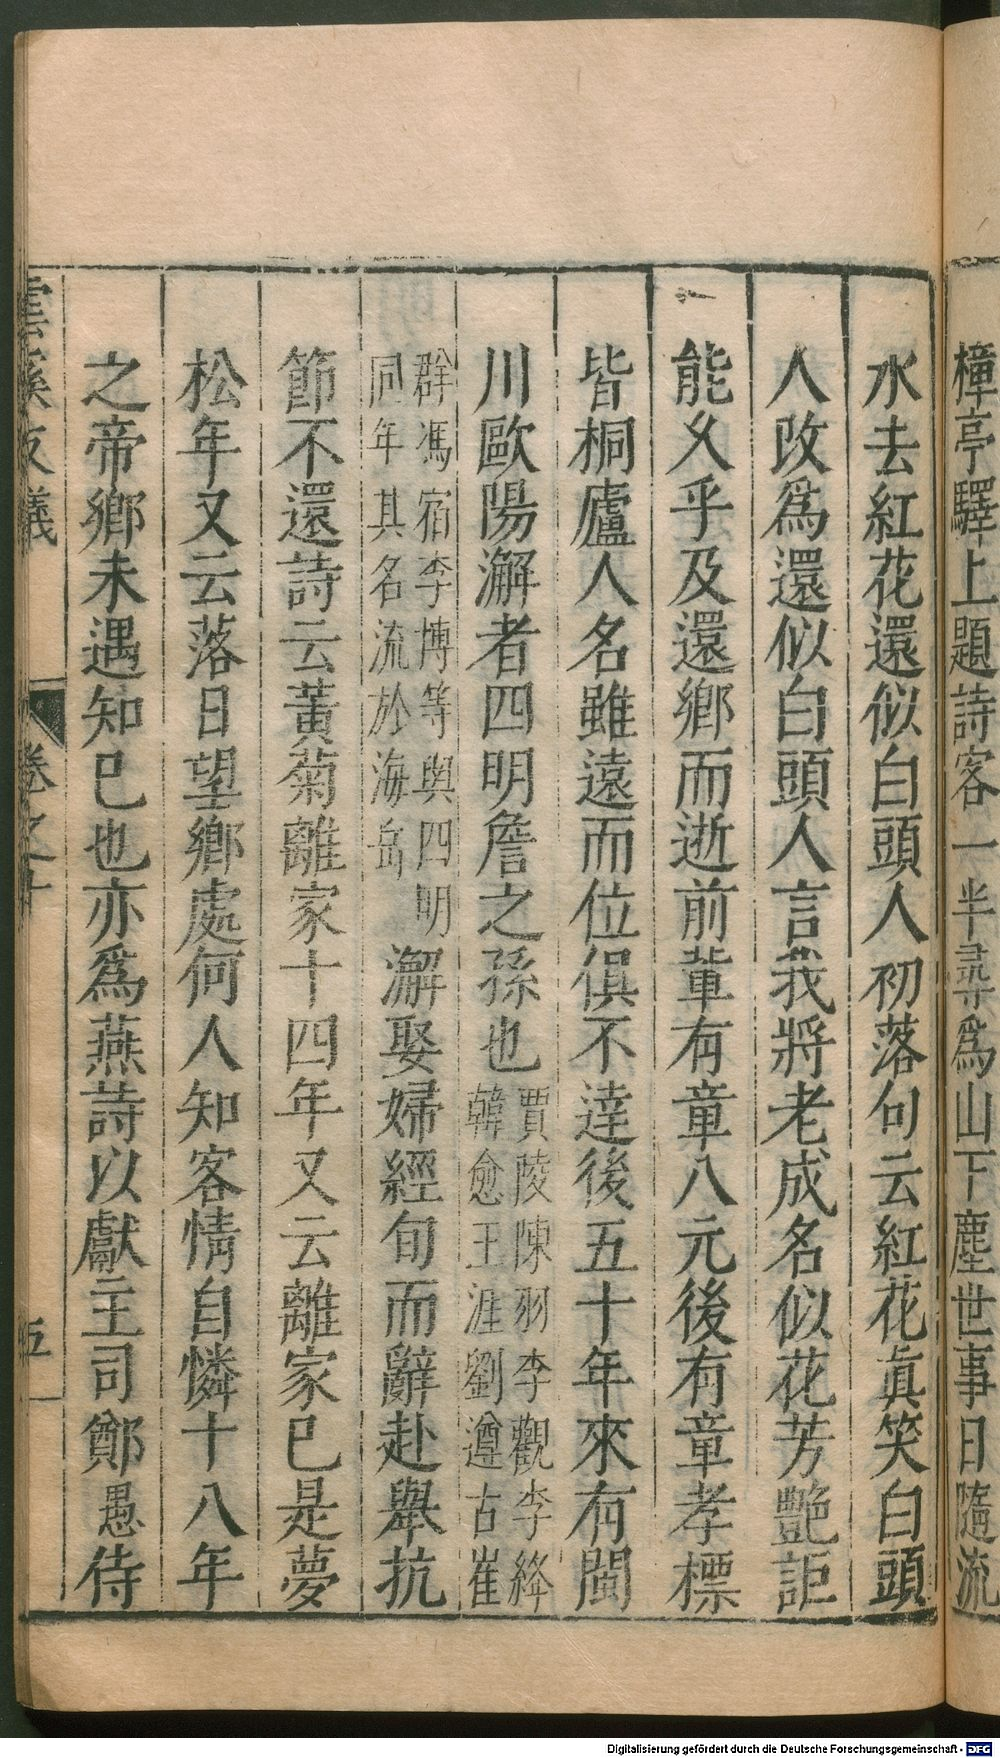 樟亭驛上題詩客一半尋爲山下塵世事日隨流
水去紅花還似白頭人初落句云紅花眞笑白頭
人改爲還似白頭人言我將老成名似花芳艷詎
能久乎及還鄉而逝前輩有章八元後有章孝標
皆桐廬人名雖遠而位俱不達後五十年來有閩
川歐陽澥者四明詹之孫也賈陵陳羽李觀李絳
韓愈王涯劉遵古崔
群馮宿李博等與四明
同年其名流於海岳
澥娶婦經旬而辭赴舉抗
節不還詩云黃菊離家十四年又云離家已是夢
松年又云落日望鄉處何人知客情自憐十八年
之帝鄉未遇知已也亦爲燕詩以獻主司鄭愚侍
雲溪友議
卷之十
五
Digitalisierung gefördert durch die Deutsche Forschungsgemeinschaft - DFG